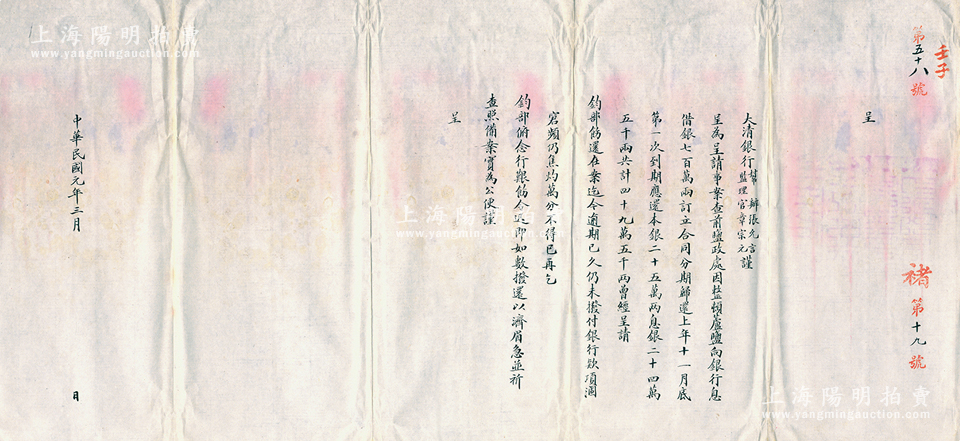 壬子
第五十八號
褚第十九號
呈
大清銀行幫辦張允言
監理官章宗元謹
呈為呈請事案查前鹽政處因整頓蘆鹽向銀行息
借銀七百萬兩訂立合同分期歸還上年十一月底
第一次到期應還本銀二十五萬兩息銀二十四萬
五千兩共計四十九萬五千兩曾經呈請
鈞部飭還在案迄今逾期已久仍未撥付銀行款項涸
窘頻仍焦灼萬分不得已再乞
鈞部俯念行艱飭令迅即如數撥還以濟眉急並祈
查照備案實為公便謹
呈
中華民國元年三月
日
上海陽明拍賣
www.yangmingauction.com
上海陽明拍賣
www.yangmingauction.com
上海陽明拍賣
www.yangmingauction.com